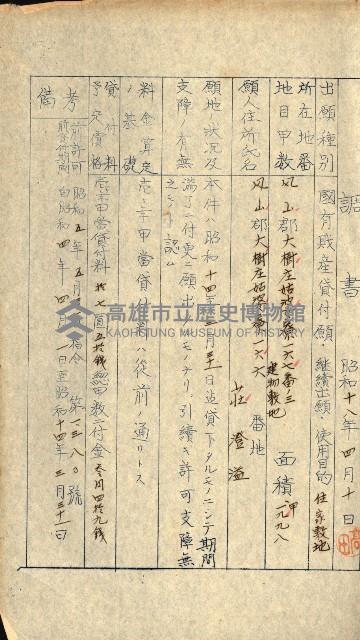 調書 昭和十八年四月十日
出願種別 國有財産貸付願 繼續出願 使用目的 住家敷地
所在地番 鳳山郡大樹庄姑婆寮一六七番三
地目甲數 建物敷地 面積 甲 一九九八
願人住所氏名 鳳山郡大樹庄姑婆寮一六六番地
莊 澄溢
願地ノ狀況及 支障ノ有無
本件ハ昭和十四年三月三十一日迄貸下タルモノニシテ期間
滿了ニ付更ニ願出
モノナリ引續キ許可支障無
之モノト認ム
料金算定ノ基礎
壱ヶ年甲當貸付料ハ從前ノ通リトス
貸付料
予定價格
壱ヶ年甲當貸付料 拾七圓五拾錢 總甲數ニ付金 参圓四拾九錢
備考
前許可 昭和五年五月 指令第一三八〇號
前貸付期間 自昭和四年四月一日至昭和十四年三月三十一日
高雄市立歷史博物館
KAOHSIUNG MUSEUM OF HISTORY